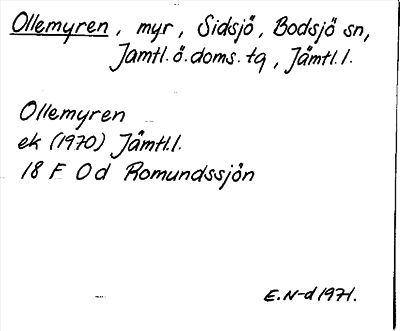 Ollemyren, myr, Sidsjö, Bodsjö sn,
Jämtl. ö. doms. tg, Jämtl. l.
Ollemyren
ek (1970) Jämtl. l.
18 F 0 d Romundssjön
E. N-d 1971.